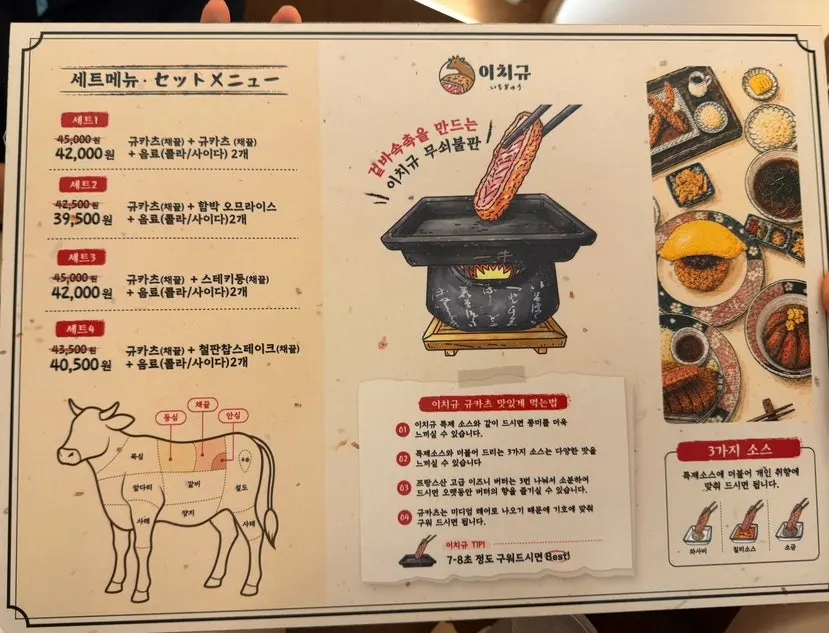 세트메뉴·セットメニュー
세트1
45,000원
42,000원
규카츠(채끝) + 규카츠 (채끝)
+ 음료(콜라/사이다) 2개
세트2
42,500원
39,500원
규카츠(채끝) + 함박 오므라이스
+ 음료(콜라/사이다)2개
세트3
45,000원
42,000원
규카츠(채끝) + 스테키동(채끝)
+ 음료(콜라/사이다)2개
세트4
43,500원
40,500원
규카츠(채끝) + 철판찹스테이크(채끝)
+ 음료(콜라/사이다)2개
등심
채끝
안심
목심
앞다리
갈비
양지
설도
우둔
사태
사태
이치규
いちぎゅう
겉바속촉을 만드는
이치규 무쇠불판
이치규 규카츠 맛있게 먹는법
01 이치규 특제 소스와 같이 드시면 풍미를 더욱
느끼실 수 있습니다.
02 특제소스와 더불어 드리는 3가지 소스는 다양한 맛을
느끼실 수 있습니다
03 프랑스산 고급 이즈니 버터는 3번 나눠서 소분하여
드시면 오랫동안 버터의 향을 즐기실 수 있습니다.
04 규카츠는 미디엄 레어로 나오기 때문에 기호에 맞춰
구워 드시면 됩니다.
이치규 TIP!
7-8초 정도 구워드시면 Best!
3가지 소스
특제소스에 더불어 개인 취향에
맞춰 드시면 됩니다.
와사비
칠리소스
소금